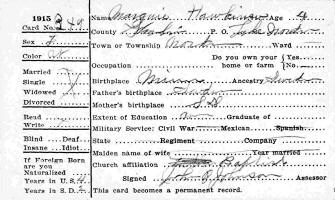 1915
Card No. 249
Name Margurie Hawkinson Age 4
Sex F
County P. O. Lake Norden
Color W
Town or Township Norden Ward
Do you own your home or farm? Yes No
Occupation
Married
Single
Widowed
Divorced
Birthplace Minn Ancestry Swede
Father's birthplace Sweden
Mother's birthplace S D
Read
Write
Extent of Education Graduate of
Military Service: Civil War Mexican Spanish
Blind Deaf
Insane Idiot
State Regiment Company
Maiden name of wife married
If Foreign Born are you Naturalized
Church affiliation Baptist
Years in U. S. 4
Signed John Johnson Assessor
Years in S. D. 2
This card becomes a permanent record.